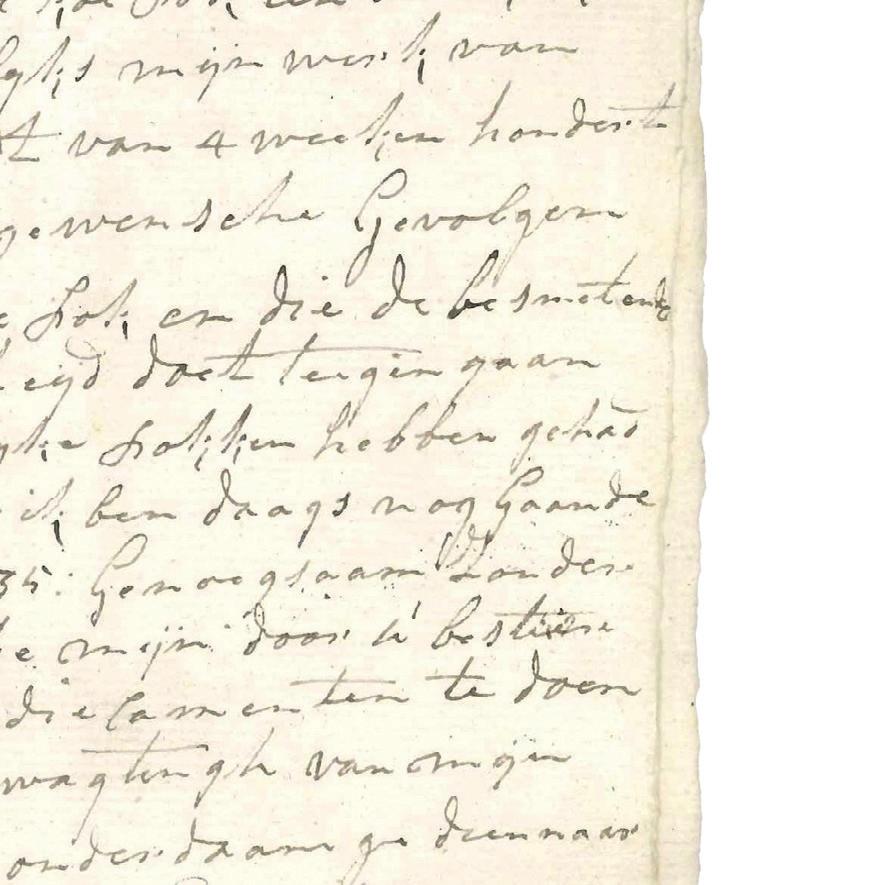 lyks mijn werk van
van 4 weeken hondert
gewensche Gevolgen
Pok en die de besmetende
eyd doet teigengaan
Pokken hebben gehad
ik ben daags nog Gaande
35: Genoegsaam Zonder
mijn door U bestiere
die lamenten te doen
wagtengh van mijn
onderdaanige diennaar